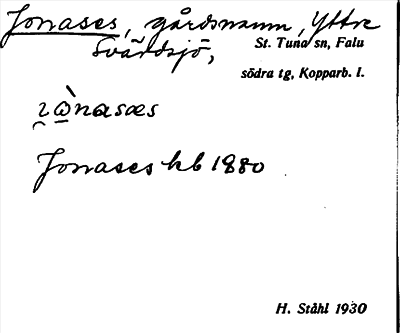 Jonases, gårdsnamn, Yttre
Svärdsjö, St. Tuna sn, Falu
södra tg, Kopparb. l.
Jonases hb 1880
H. Ståhl 1930